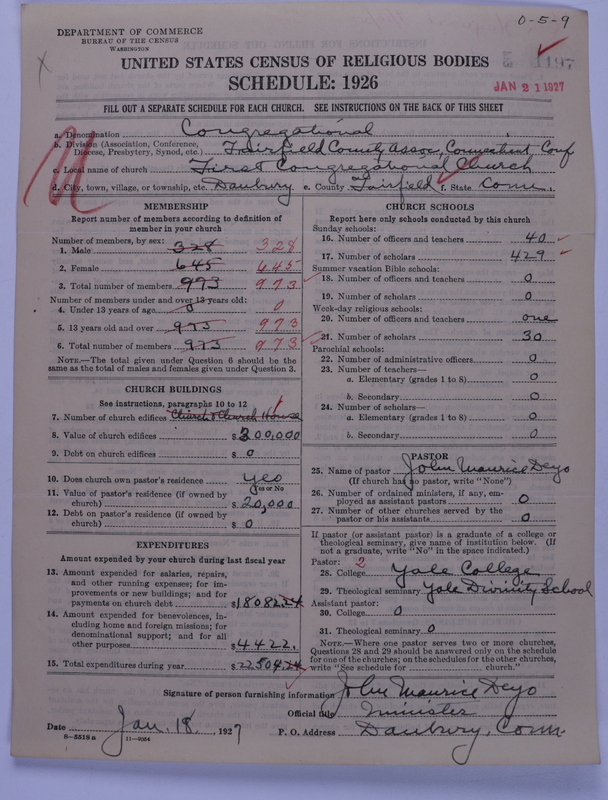 0-5-9
DEPARTMENT OF COMMERCE
BUREAU OF THE CENSUS
WASHINGTON
1197
JAN 21 1927
UNITED STATES CENSUS OF RELIGIOUS BODIES
SCHEDULE: 1926
FILL OUT A SEPARATE SCHEDULE FOR EACH CHURCH. SEE INSTRUCTIONS ON THE BACK OF THIS SHEET
a. Denomination Congregational
b. Division (Association, Conference, Diocese, Presbytery, Synod, etc.) Fairfield County Assoc, Connecticut Conf
c. Local name of church First Congregational Church
d. City, town, village, or township, etc. Danbury e. County Fairfield f. State Conn.
MEMBERSHIP
Report number of members according to definition of
member in your church
Number of members by sex:
1. Male 328 328
2. Female 645 645
3. Total number of members 973 973
Number of members under and over 13 years old:
4. Under 13 years of age 0 0
5. 13 years old and over 973 973
6. Total number of members 973 973
NOTE.—The total given under Question 6 should be the
same as the total of males and females given under Question 3.
CHURCH BUILDINGS
See instructions, paragraphs 10 to 12
7. Number of church edifices Church & Church House 1
8. Value of church edifices $ 200,000
9. Debt on church edifices $ 0
10. Does church own pastor's residence yes
Yes or No
11. Value of pastor's residence (if owned by
church) $ 20,000
12. Debt on pastor's residence (if owned by
church) $ 0
EXPENDITURES
Amount expended by your church during last fiscal year
13. Amount expended for salaries, repairs,
and other running expenses; for im-
provements or new buildings; and for
payments on church debt $18082.24
14. Amount expended for benevolences, in-
cluding home and foreign missions; for
denominational support; and for all
other purposes $4422.
15. Total expenditures during year $22504.24
CHURCH SCHOOLS
Report here only schools conducted by this church
Sunday schools:
16. Number of officers and teachers 40
17. Number of scholars 429
Summer vacation Bible schools:
18. Number of officers and teachers 0
19. Number of scholars 0
Week-day religious schools:
20. Number of officers and teachers one
21. Number of scholars 30
Parochial schools:
22. Number of administrative officers 0
23. Number of teachers—
a. Elementary (grades 1 to 8) 0
b. Secondary 0
24. Number of scholars—
a. Elementary (grades 1 to 8) 0
b. Secondary 0
PASTOR
25. Name of pastor John Maurice Deyo
(If church has no pastor, write "None")
26. Number of ordained ministers, if any, em-
ployed as assistant pastors 0
27. Number of other churches served by the
pastor or his assistants 0
If pastor (or assistant pastor) is a graduate of a college or
theological seminary, give name of institution below. (If
not a graduate, write "No" in the space indicated.)
Pastor: 2
28. College Yale College
29. Theological seminary Yale Divinity School
Assistant pastor:
30. College 0
31. Theological seminary 0
NOTE.—Where one pastor serves two or more churches,
Questions 28 and 29 should be answered only on the schedule
for one of the churches; on the schedules for the other churches,
write "See schedule for church."
Signature of person furnishing information John Maurice Deyo
Official title Minister
Date Jan. 18, 1927 P. O. Address Danbury, Conn.
8-5518 a 11-9034